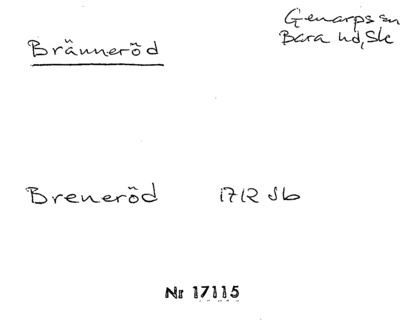 Bränneröd
Genarps sn
Bara hd, Sk
Breneröd 1712 Jb
Nr 17115